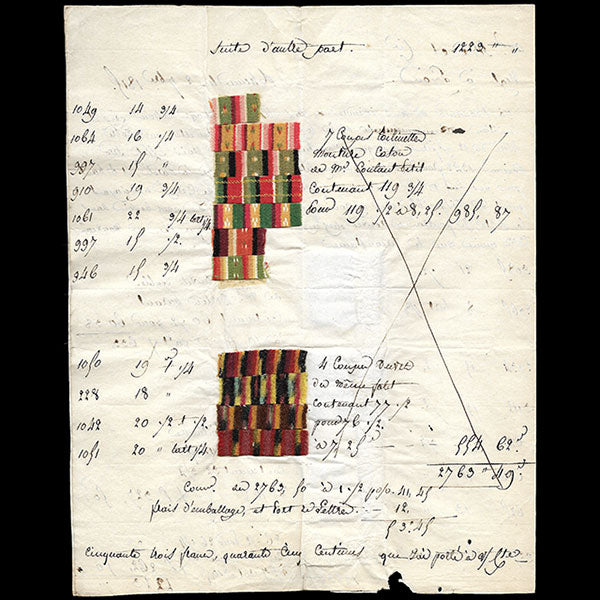 Suite d'autre part. 1223 " "
1049 14 3/4
1064 16 1/4
987 15 "
910 19 3/4
1061 22 3/4
997 15 1/2
946 15 3/4
7 Coupes
monture Coton
de Mr. Coulant
contenant 119 3/4
pour 119 1/2 à 8, 25. 985, 87
1050 19 1/4
228 18 "
1042 20 1/2
1051 20 " 1/4
4 Coupes
du même
contenant 77 1/2
pour 76 1/2
à 7, 25 554 62
2763 " 49
Com. de 2763, 50 à 1 1/2 p% 41, 45
frais d'emballage, et Port de Lettre 12.
53.45
Cinquante trois francs, quarante Cinq Centimes que j'ai porté à